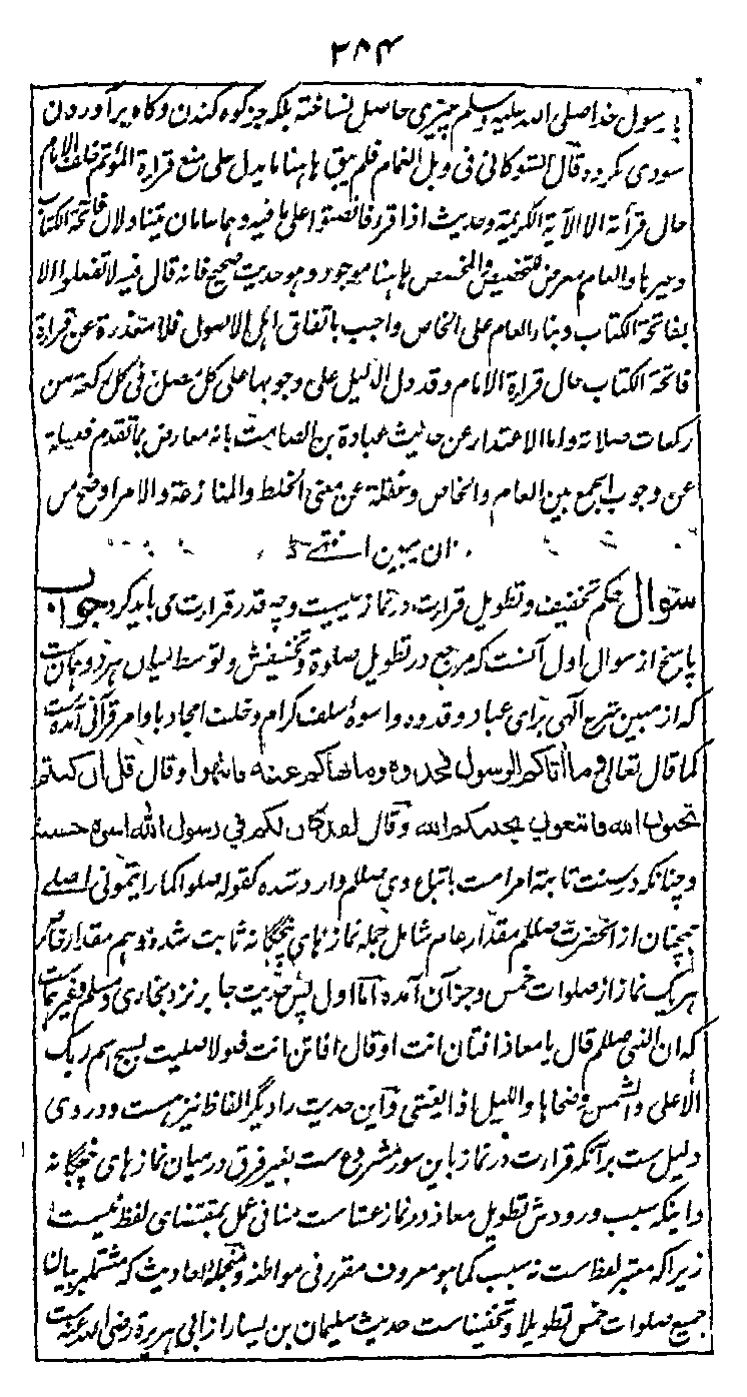 ۲۸۴
رسول خدا صلی الله علیه وسلم چیزی حاصل نساخته بلکه جز کوه کندن و کاه برآوردن
سودی نکرده قال الشوکانی فی وبل الغمام فلم یبق هاهنا ما یدل علی منع قراءة المؤتم خلف الامام
حال قرأته الا الآیة الکریمة وحدیث اذا قرء فانصتوا علی ما فیه وهما عامان یتناولان فاتحة الکتاب
وغیرها والعام معرض للتخصیص والمخصص هاهنا موجود وهو حدیث صحیح فانه قال فیه لا تفعلوا الا
بفاتحة الکتاب وبناء العام علی الخاص واجب باتفاق اهل الاصول فلا معذرة عن قراءة
فاتحة الکتاب حال قراءة الامام وقد دل الدلیل علی وجوبها علی کل مصل فی کل رکعة من
رکعات صلاته واما الاعتذار عن حدیث عبادة بن الصامت بانه معارض بما تقدم فغفلة
عن وجوب الجمع بین العام والخاص وغفلة عن معنی الخلط والمنازعة والامر اوضح من
ان یبین انتهی
سوال حکم تخفیف و تطویل قرارت در نماز چیست و چه قدر قرارت می باید کرد جواب
پاسخ از سوال اول آنست که مرجع در تطویل صلوة و تخفیفش و توسط میان هر دو همان ست
که از مبین شرع الهی برای عباد و قدوه و اسوهٔ سلف کرام و خلف امجاد با وامر قرآنی آمده ست
کما قال تعالی وما آتاکم الرسول فخذوه وما نهاکم عنه فانتهوا وقال قل ان کنتم
تحبون الله فاتبعونی یحببکم الله وقال لقد کان لکم فی رسول الله اسوة حسنة
و چنانکه در سنت ثابته امر امت باتباع وی صللم وارد شده کقوله صلوا کما رایتمونی اصلی
همچنان از آنحضرت صللم مقدار عام شامل جمله نمازهای پنجگانه ثابت شده و هم مقدار خاص
هر یک نماز از صلوات خمس و جز آن آمده اما اول پس حدیث جابر نزد بخاری و مسلم و غیرهماست
که ان النبی صللم قال یا معاذ افتان انت او قال افاتن انت فلولا صلیت بسبح اسم ربک
الاعلی والشمس وضحاها واللیل اذا یغشی و این حدیث را دیگر الفاظ نیز هست و در وی
دلیل ست بر آنکه قرارت در نماز باین سور مشروع ست بغیر فرق در میان نمازهای پنجگانه
و اینکه سبب ورودش تطویل معاذ در نماز عشا ست منافی عمل بمقتضای لفظ نیست
زیرا که معتبر لفظ است نه سبب کما هو معروف مقرر فی مواطنه و منجمله احادیث که مشتمل بر بیان
جمیع صلوات خمس تطویلا و تخفیفا ست حدیث سلیمان بن یسار از ابی هریرة رضی الله عنه ست